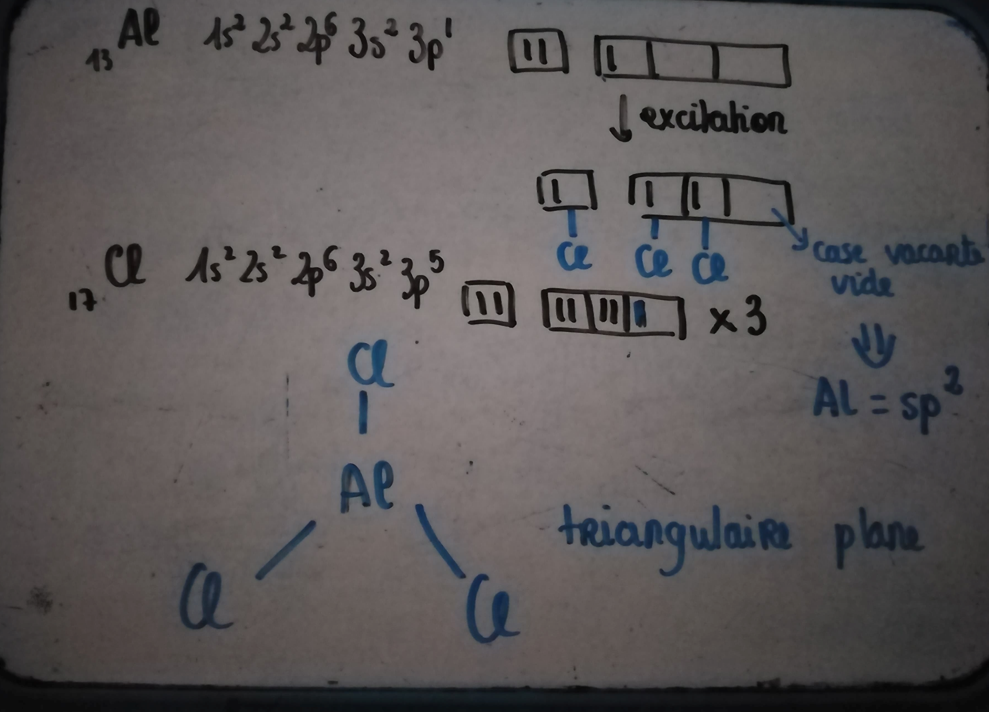 ₁₃Al 1s² 2s² 2p⁶ 3s² 3p¹
excitation
Cl Cl Cl
case vacante
vide
₁₇Cl 1s² 2s² 2p⁶ 3s² 3p⁵ x 3
⇓
Al = sp²
Cl
Al
triangulaire plane
Cl Cl